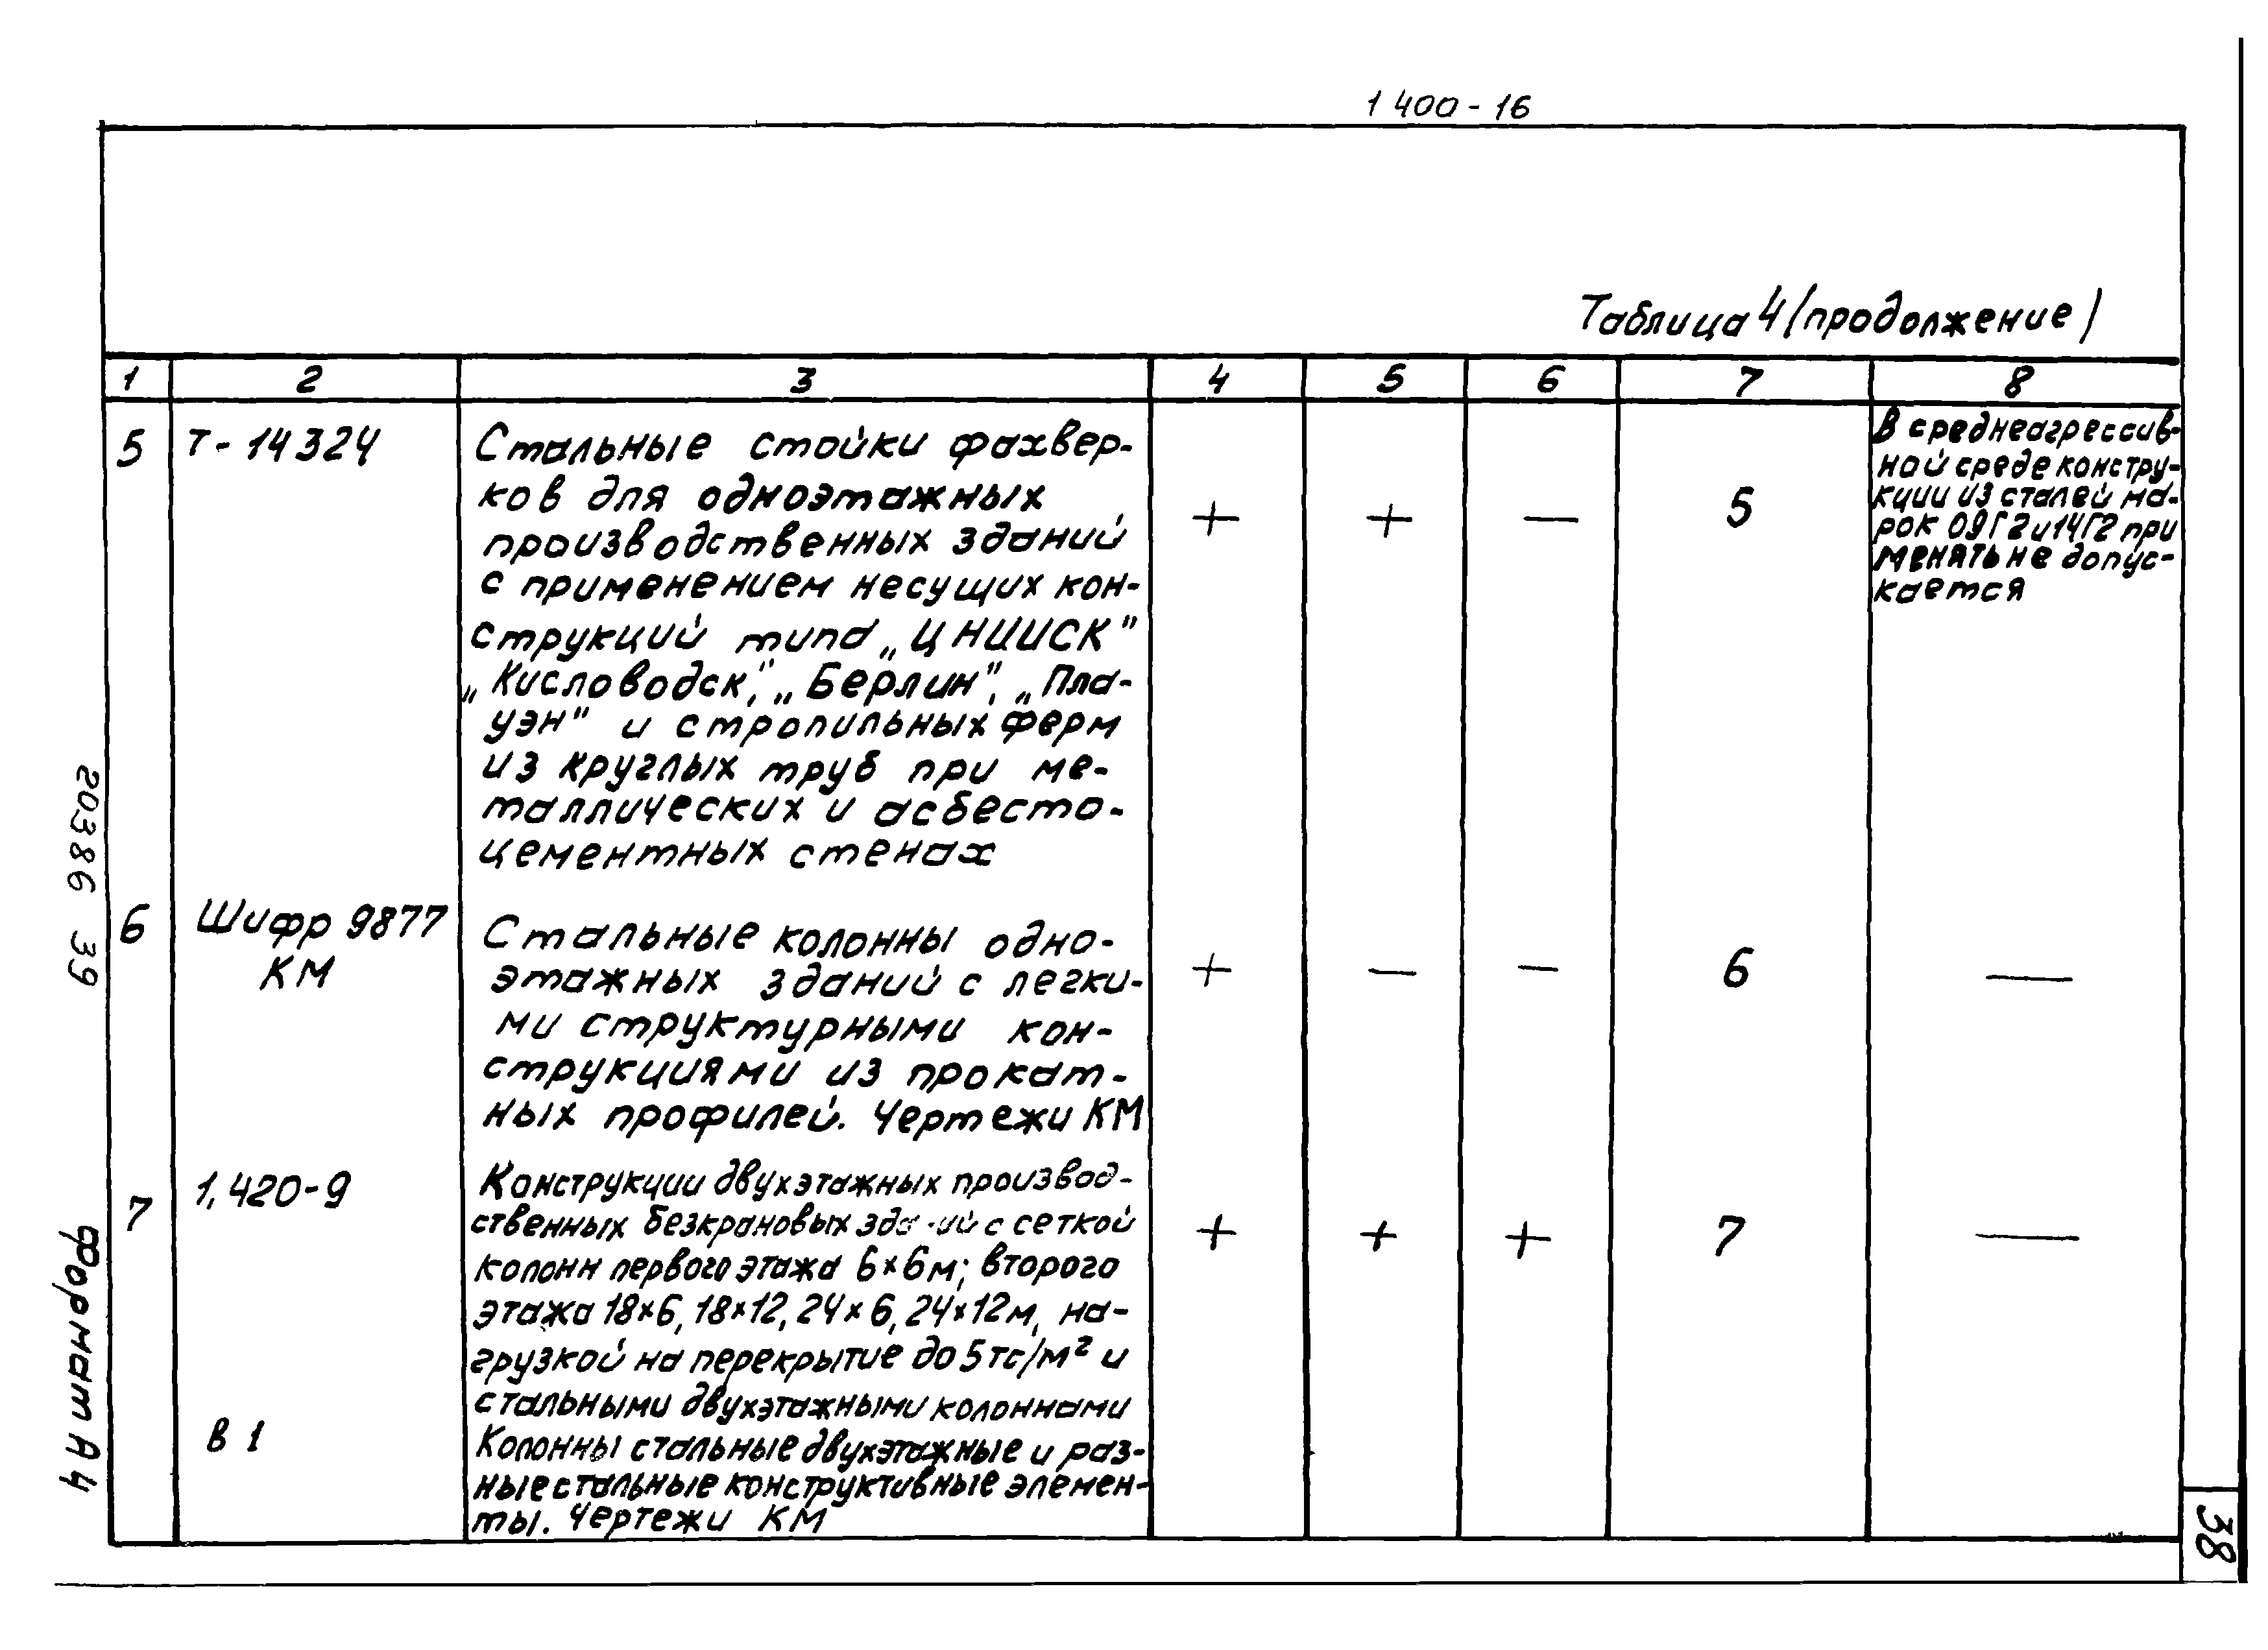 1 400-16
Таблица 4 (продолжение)
1 2 3 4 5 6 7 8
5 Т-14324
Стальные стойки фахвер-
ков для одноэтажных
производственных зданий
с применением несущих кон-
струкций типа „ЦНИИСК"
„Кисловодск", „Берлин", „Пла-
уэн" и стропильных ферм
из круглых труб при ме-
таллических и асбесто-
цементных стенах
+ + — 5
В среднеагрессив-
ной среде констру-
кции из сталей ма-
рок 09Г2 и 14Г2 при
менять не допус-
кается
6 Шифр 9877
КМ
Стальные колонны одно-
этажных зданий с легки-
ми структурными кон-
струкциями из прокат-
ных профилей. Чертежи КМ
+ — — 6 —
7 1,420-9
Конструкции двухэтажных производ-
ственных безкрановых зда-ий с сеткой
колонн первого этажа 6×6м; второго
этажа 18×6, 18×12, 24×6, 24×12м, на-
грузкой на перекрытие до 5тс/м² и
стальными двухэтажными колоннами
+ + + 7 —
В 1
Колонны стальные двухэтажные и раз-
ные стальные конструктивные элемен-
ты. Чертежи КМ
20386 39
Формат А4
38